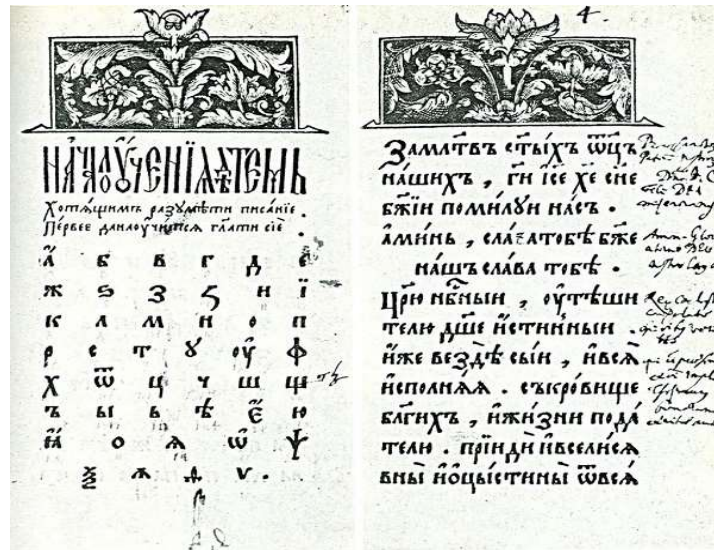 НАЧАЛО ꙋЧЕНІЯ ДѢТЕМЪ
Хотѧщимъ разумѣти писанїе.
Первее да наоучитсѧ гл҃ати сїе
а б в г д е
ж ѕ з ꙁ и ї
к л м н о п
р с т ꙋ оу ф
х ѿ ц ч ш щ
ъ ы ь ѣ є ю
ꙗ о я ѡ ѱ
ѯ ѧ ѳ ѵ.
4.
За мл҃твъ ст҃ыхъ ѿц҃ъ
нашихъ, г҃и іс҃е хс҃е сн҃е
бж҃їи помилуи насъ.
Аминь, слава тобѣ бж҃е
нашъ слава тобѣ.
Цр҃ю нбн҃ыи, оутѣши
телю дш҃е истинныи.
иже вездѣ сыи, и всѧ
исполнѧѧ. съкровище
бл҃гихъ, и жизни пода
телю. прїиди и вселисѧ
вны и ѡцысти ны ѿ всѧ